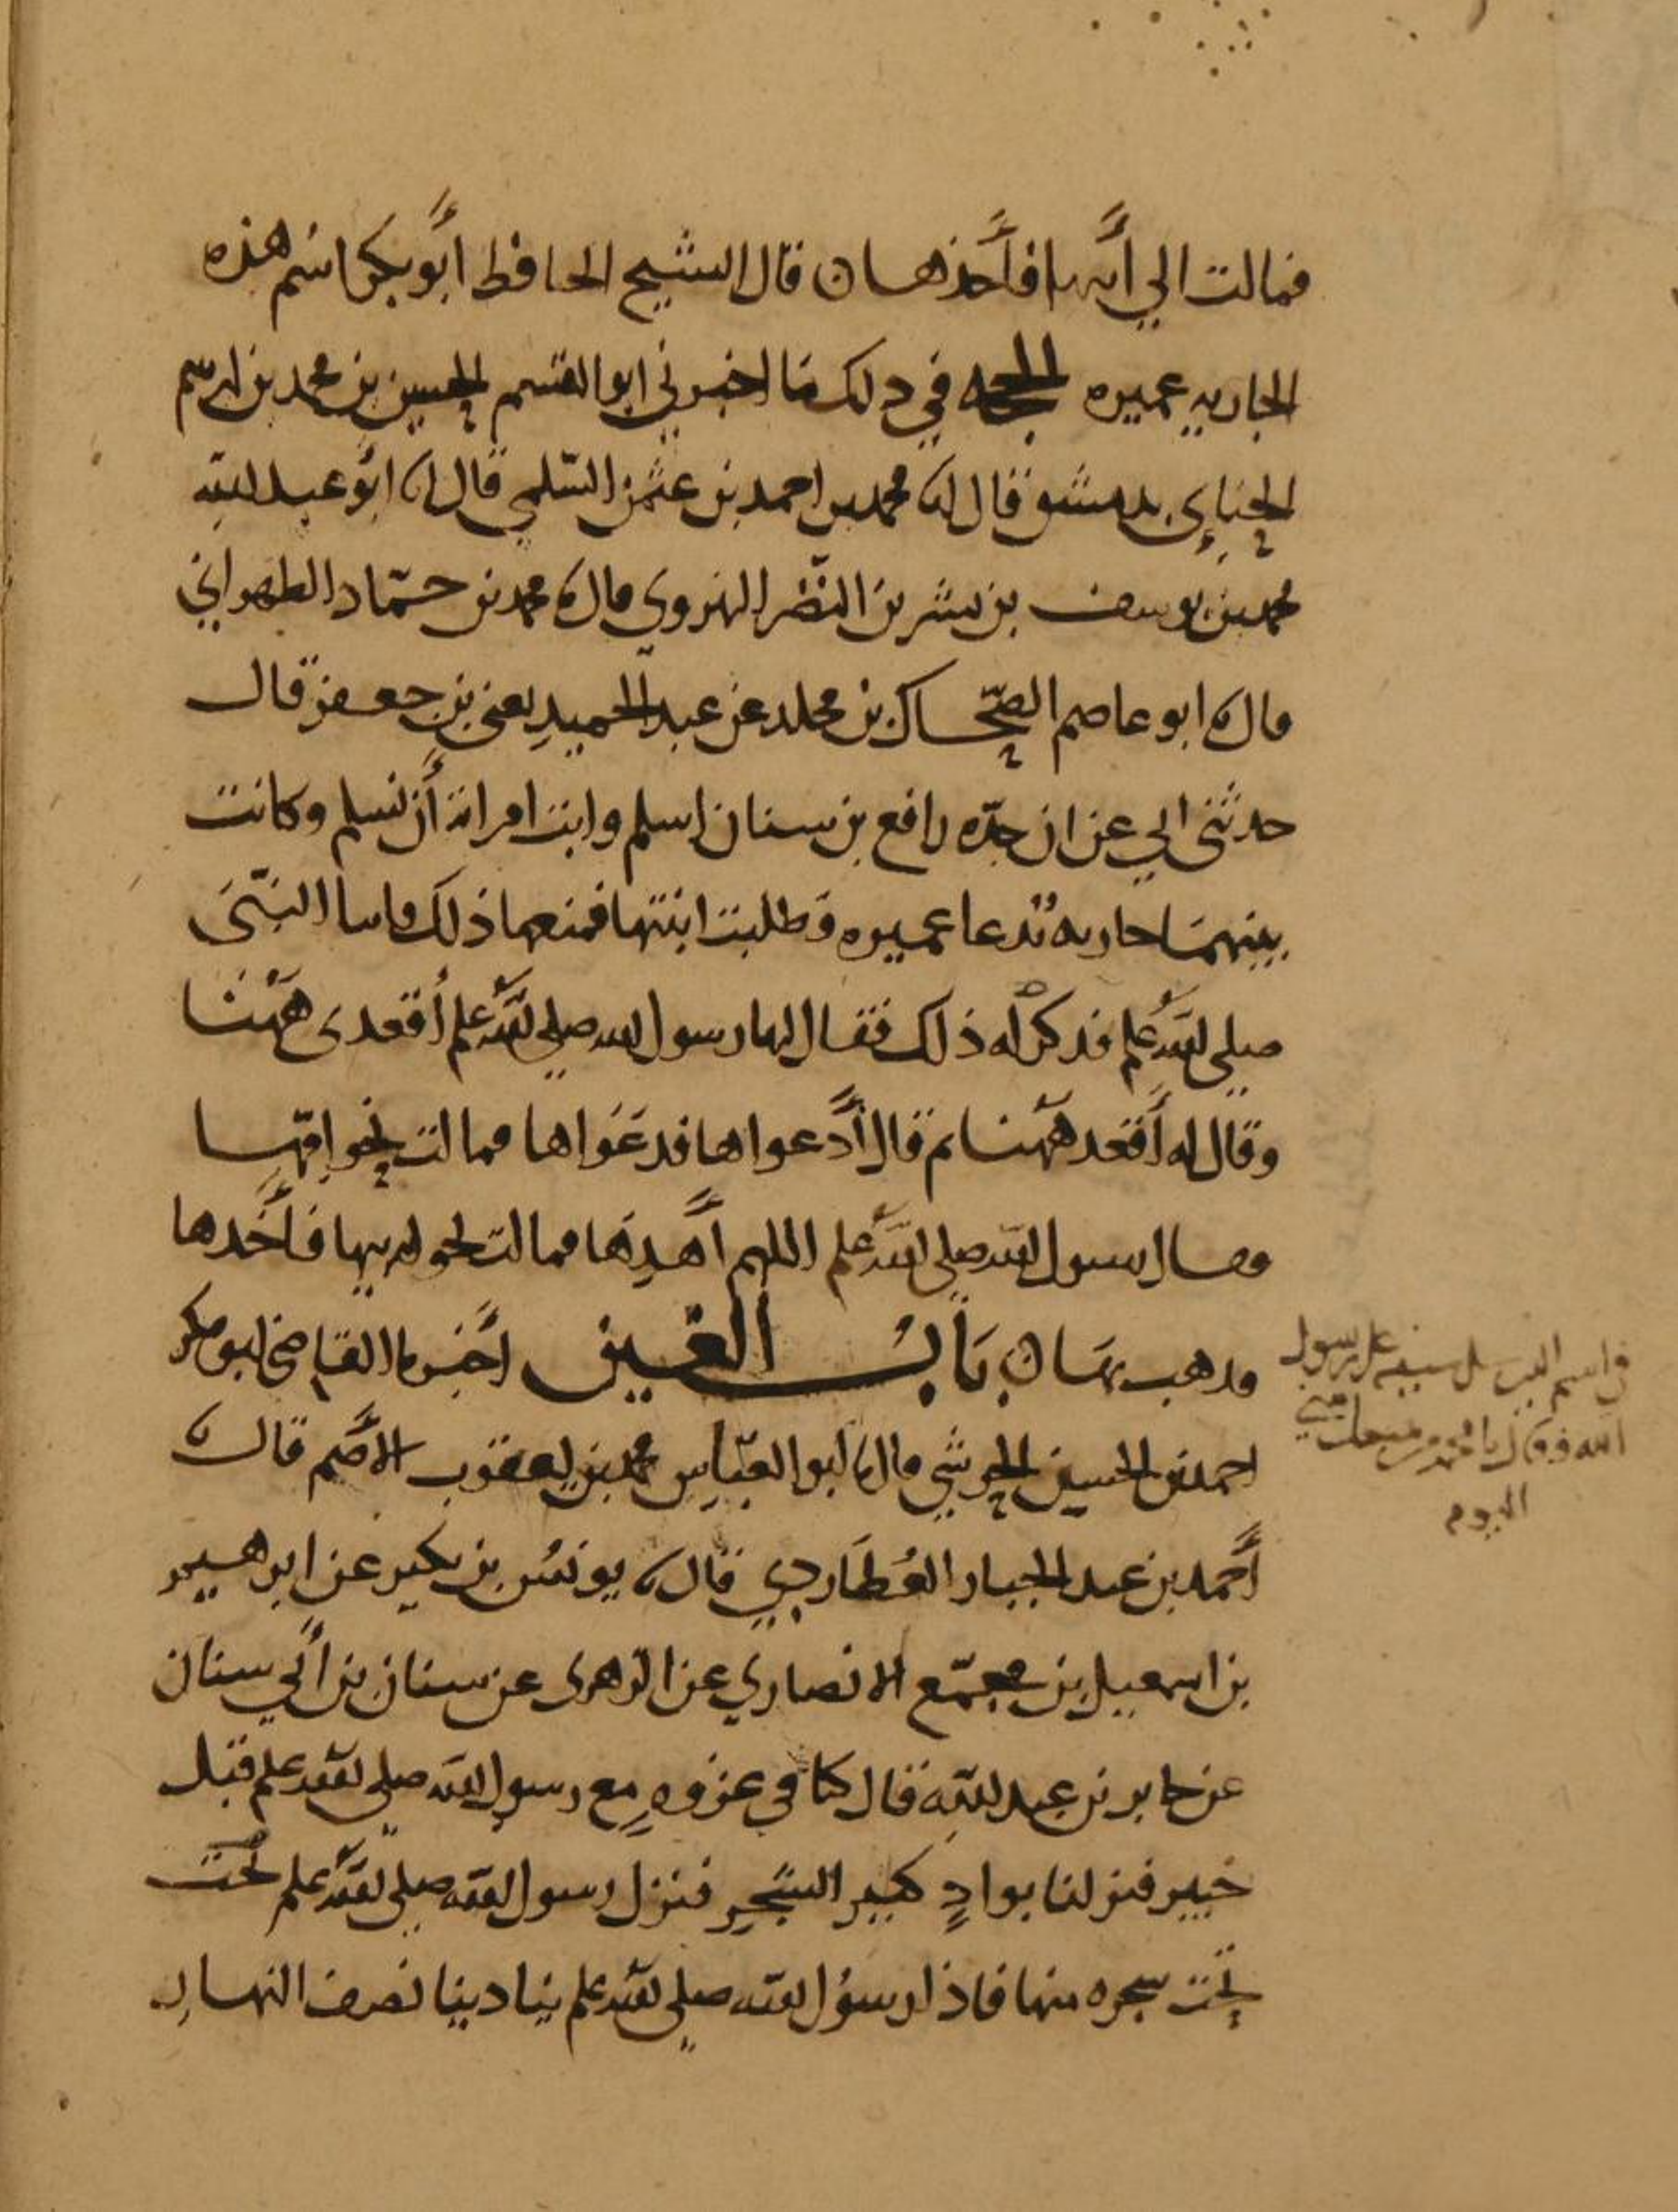 فمالت الي أبيها فأخذها ن قال الشيخ الحافظ أبو بكر اسم هذه
الجاريه عميره الحجه في ذلك ما اخبرني ابو القسم الحسين بن محمد بن ابرهيم
الحنائي بدمشق قال انا محمد بن احمد بن عثمن السلمي قال انا أبو عبد الله
محمد بن يوسف بن بشر بن النضر الهروي قال نا محمد بن حماد الطهراني
قال نا ابو عاصم الضحاك بن مخلد عن عبد الحميد يعني بن جعفر قال
حدثني ابي عن ان جده رافع بن سنان اسلم وابت امراته أن تسلم وكانت
بينهما جاريه تدعا عميره وطلبت ابنتها فمنعها ذلك فاتيا النبي
صلى الله علم فذكر له ذلك فقال لها رسول الله صلى الله علم أقعدى ههنا
وقال له أقعد ههنا ثم قال أدعواها فدعواها فمالت نحو امها
فقال رسول الله صلى الله علم اللهم أهدها فمالت نحو ابيها فأخذها
وذهب بها ن باب الغين أخبرنا القاضي ابو بكر
احمد بن الحسين الحرشي قال نا ابو العباس محمد بن يعقوب الأصم قال نا
أحمد بن عبد الجبار العطاردي قال نا يونس بن بكير عن ابرهيم
بن اسمعيل بن مجمع الانصاري عن الزهرى عن سنان بن أبي سنان
عن جابر بن عبد الله قال كنا في غزوه مع رسول الله صلى الله علم قبل
خيبر فنزلنا بوادٍ كثير الشجر فنزل رسول الله صلى الله علم تحت
تحت شجره منها فاذا رسول الله صلى الله علم ينادينا نصف النهار
اسم الذي سل سيفه على رسول
الله فقال يا محمد من يمنعك مني
اليوم